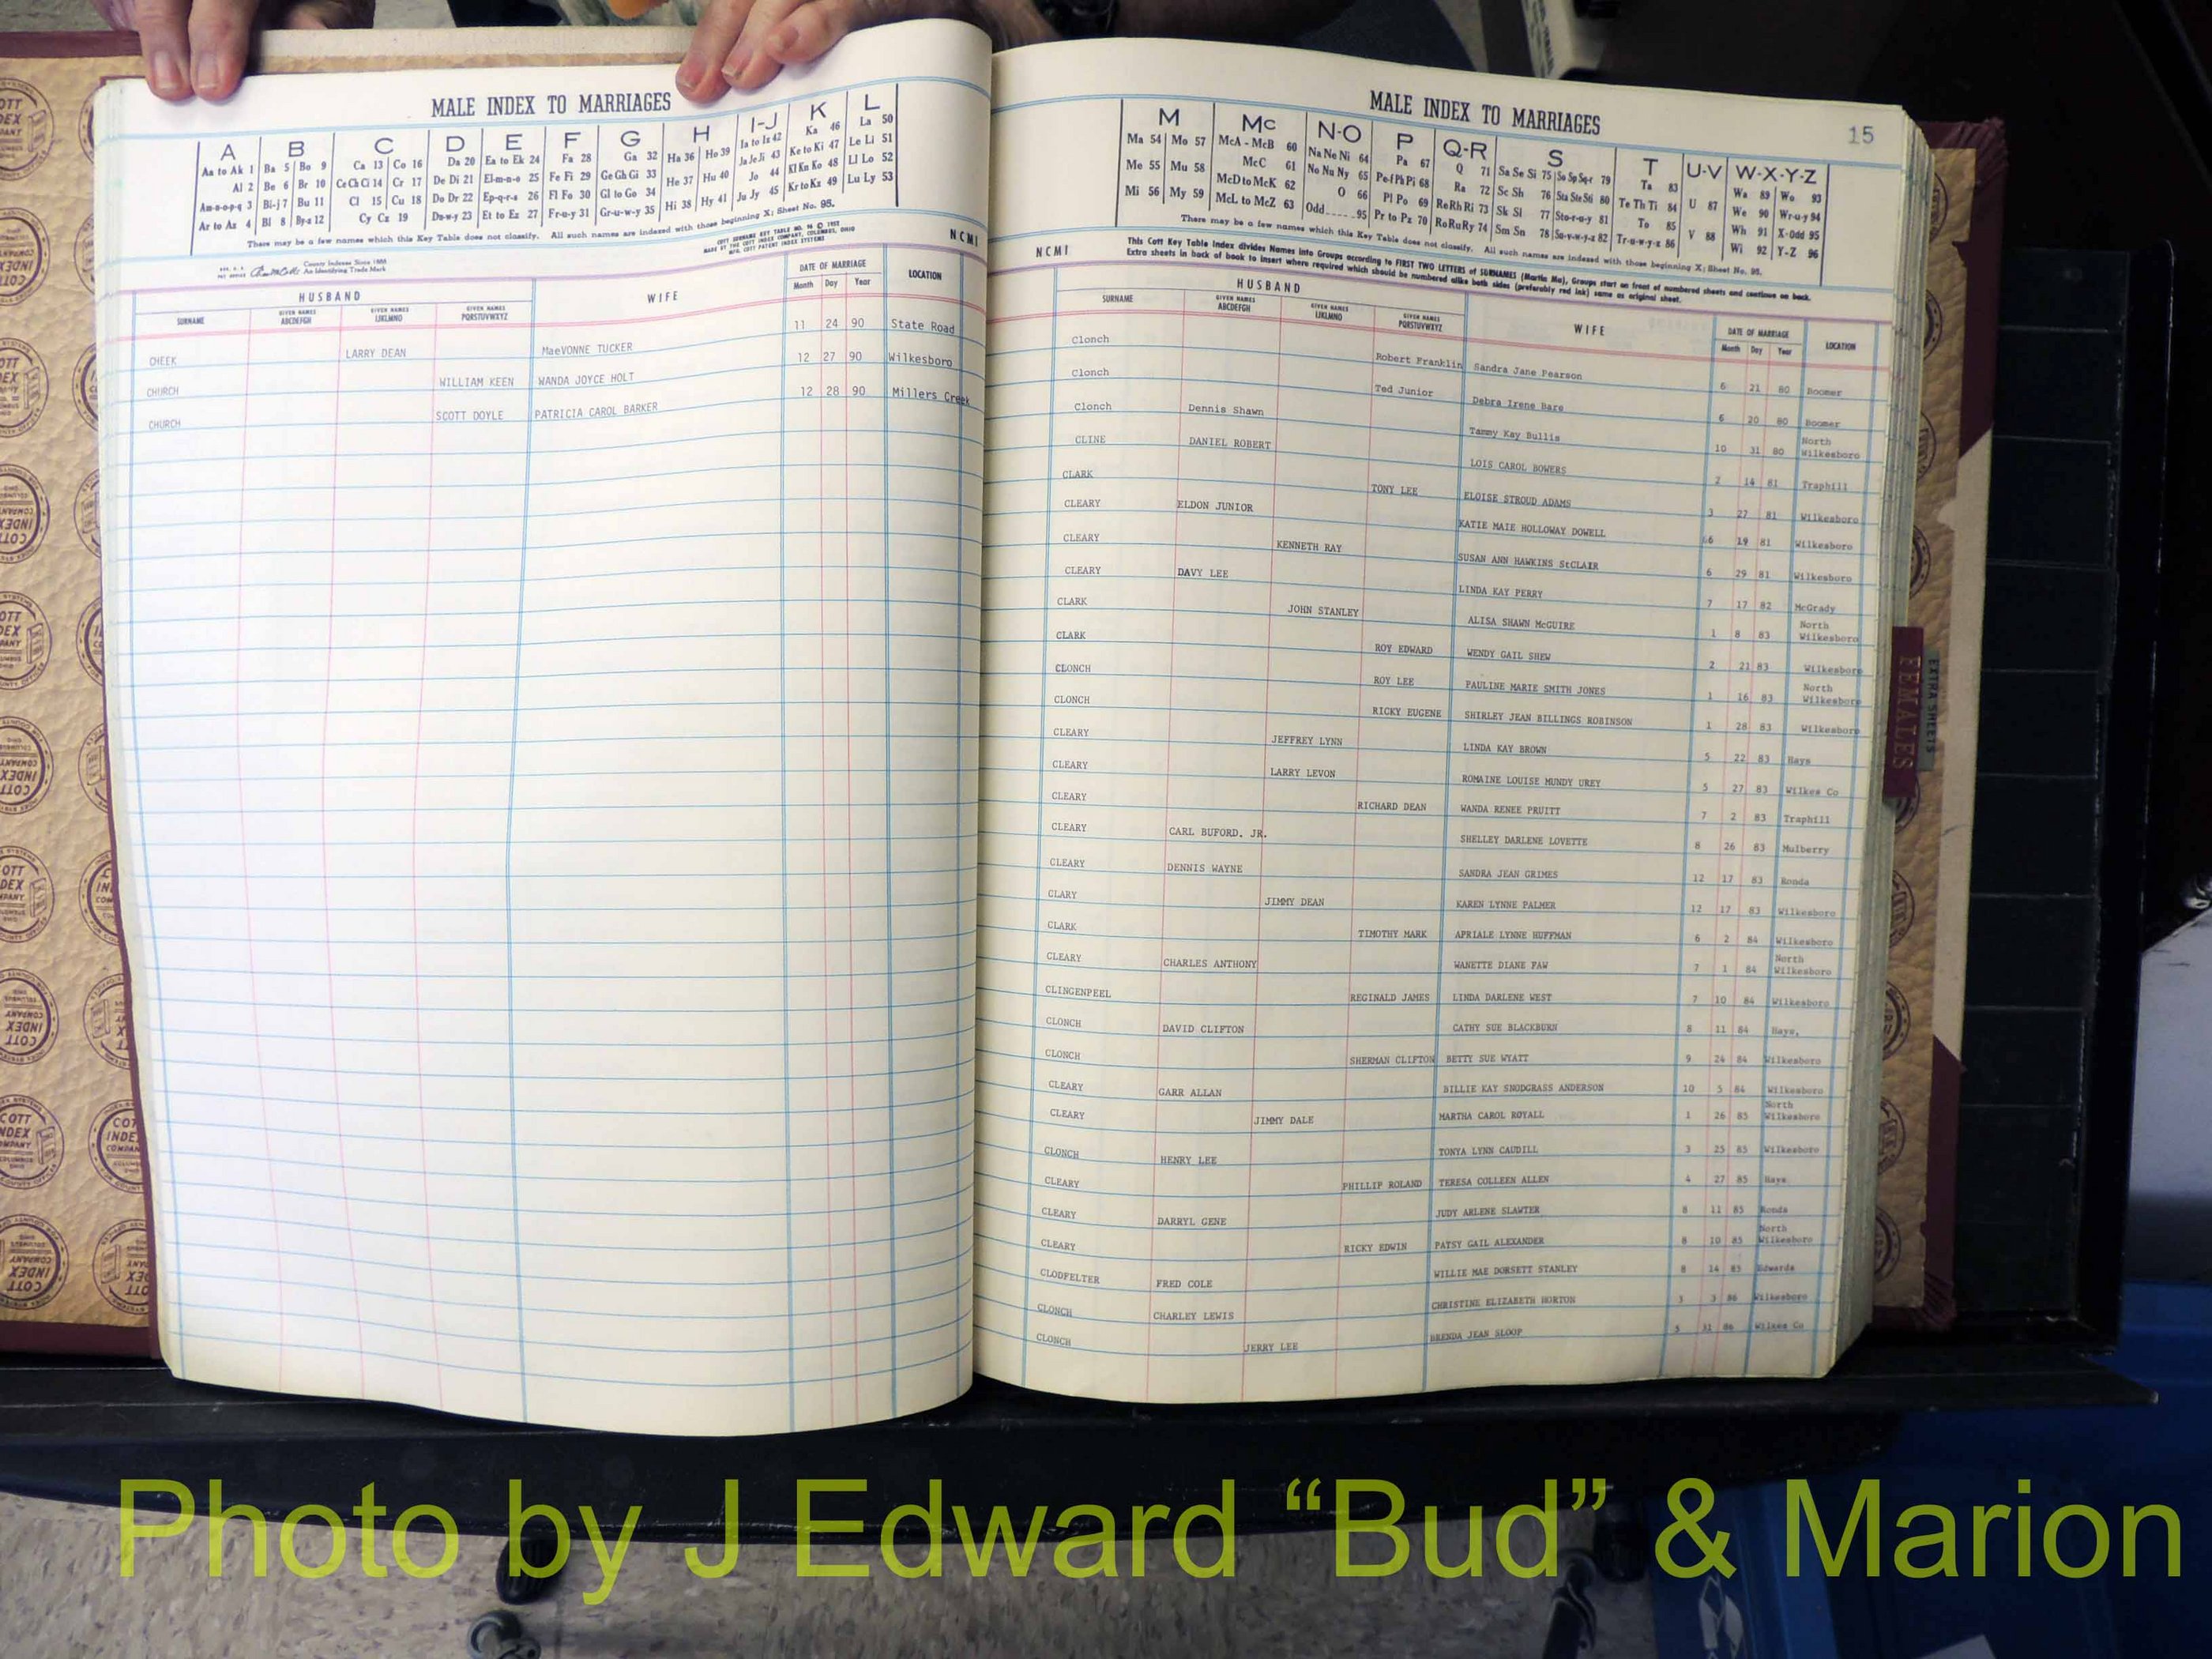 MALE INDEX TO MARRIAGES
A B C D E F G H I-J K L
Aa to Ak 1 Ba 5 Bo 9 Ca 13 Co 16 Da 20 Ea to Ek 24 Fa 28 Ga 32 Ha 36 Ho 39 Ia to Is 42 Ka 46 La 50
Al 2 Be 6 Br 10 Ce Ch Ci 14 Cr 17 De Di 21 El-m-n-o 25 Fe Fi 29 Ge Gh Gi 33 He 37 Hu 40 Ja Je Ji 43 Ke to Ki 47 Le Li 51
Am-n-o-p-q 3 Bi-j 7 Bu 11 Cl 15 Cu 18 Do Dr 22 Ep-q-r-s 26 Fl Fo 30 Gl to Go 34 Hi 38 Hy 41 Jo 44 Kl Kn Ko 48 Ll Lo 52
Ar to Az 4 Bl 8 By-z 12 Cy Cz 19 Du-w-y 23 Et to Ez 27 Fr-u-y 31 Gr-u-w-y 35 Ju Jy 45 Kr to Kz 49 Lu Ly 53
There may be a few names which this Key Table does not classify. All such names are indexed with those beginning X; Sheet No. 95.
County Indexes Since 1888
An Identifying Trade Mark
COTT SURNAME KEY TABLE NO. 96 © 1952
MADE BY THE COTT INDEX COMPANY, COLUMBUS, OHIO
NCMI
HUSBAND WIFE DATE OF MARRIAGE LOCATION
SURNAME GIVEN NAMES ABCDEFGH GIVEN NAMES IJKLMNO GIVEN NAMES PQRSTUVWXYZ Month Day Year
CHEEK LARRY DEAN MaeVONNE TUCKER 11 24 90 State Road
CHURCH WILLIAM KEEN WANDA JOYCE HOLT 12 27 90 Wilkesboro
CHURCH SCOTT DOYLE PATRICIA CAROL BARKER 12 28 90 Millers Creek
MALE INDEX TO MARRIAGES
15
M Mc N-O P Q-R S T U-V W-X-Y-Z
Ma 54 Mo 57 McA - McB 60 Na Ne Ni 64 Pa 67 Q 71 Sa Se Si 75 So Sp Sq-r 79 Ta 83 U 87 Wa 89 Wo 93
Me 55 Mu 58 McC 61 No Nu Ny 65 Pe-f Ph Pi 68 Ra 72 Sc Sh 76 Sta Ste Sti 80 Te Th Ti 84 V 88 We 90 Wr-u-y 94
Mi 56 My 59 McD to McK 62 O 66 Pl Po 69 Re Rh Ri 73 Sk Sl 77 Sto-r-u-y 81 To 85 Wh 91 X-Odd 95
McL to McZ 63 Odd 95 Pr to Pz 70 Ro Ru Ry 74 Sm Sn 78 Su-v-w-y-z 82 Tr-u-w-y-z 86 Wi 92 Y-Z 96
There may be a few names which this Key Table does not classify. All such names are indexed with those beginning X; Sheet No. 95.
NCMI
This Cott Key Table Index divides Names into Groups according to FIRST TWO LETTERS of SURNAMES (Martin Ma), Groups start on front of numbered sheets and continue on back.
Extra sheets in back of book to insert where required which should be numbered alike both sides (preferably red ink) same as original sheet.
HUSBAND WIFE DATE OF MARRIAGE LOCATION
SURNAME GIVEN NAMES ABCDEFGH GIVEN NAMES IJKLMNO GIVEN NAMES PQRSTUVWXYZ Month Day Year
Clonch Robert Franklin Sandra Jane Pearson 6 21 80 Boomer
Clonch Ted Junior Debra Irene Bare 6 20 80 Boomer
Clonch Dennis Shawn Tammy Kay Bullis 10 31 80 North Wilkesboro
CLINE DANIEL ROBERT LOIS CAROL BOWERS 2 14 81 Traphill
CLARK TONY LEE ELOISE STROUD ADAMS 3 27 81 Wilkesboro
CLEARY ELDON JUNIOR KATIE MAIE HOLLOWAY DOWELL 6 19 81 Wilkesboro
CLEARY KENNETH RAY SUSAN ANN HAWKINS StCLAIR 6 29 81 Wilkesboro
CLEARY DAVY LEE LINDA KAY PERRY 7 17 82 McGrady
CLARK JOHN STANLEY ALISA SHAWN McGUIRE 1 8 83 North Wilkesboro
CLARK ROY EDWARD WENDY GAIL SHEW 2 21 83 Wilkesboro
CLONCH ROY LEE PAULINE MARIE SMITH JONES 1 16 83 North Wilkesboro
CLONCH RICKY EUGENE SHIRLEY JEAN BILLINGS ROBINSON 1 28 83 Wilkesboro
CLEARY JEFFREY LYNN LINDA KAY BROWN 5 22 83 Hays
CLEARY LARRY LEVON ROMAINE LOUISE MUNDY UREY 5 27 83 Wilkes Co
CLEARY RICHARD DEAN WANDA RENEE PRUITT 7 2 83 Traphill
CLEARY CARL BUFORD. JR. SHELLEY DARLENE LOVETTE 8 26 83 Mulberry
CLEARY DENNIS WAYNE SANDRA JEAN GRIMES 12 17 83 Ronda
CLARY JIMMY DEAN KAREN LYNNE PALMER 12 17 83 Wilkesboro
CLARK TIMOTHY MARK APRIALE LYNNE HUFFMAN 6 2 84 Wilkesboro
CLEARY CHARLES ANTHONY WANETTE DIANE FAW 7 1 84 North Wilkesboro
CLINGENPEEL REGINALD JAMES LINDA DARLENE WEST 7 10 84 Wilkesboro
CLONCH DAVID CLIFTON CATHY SUE BLACKBURN 8 11 84 Hays,
CLONCH SHERMAN CLIFTON BETTY SUE WYATT 9 24 84 Wilkesboro
CLEARY GARR ALLAN BILLIE KAY SNODGRASS ANDERSON 10 5 84 Wilkesboro
CLEARY JIMMY DALE MARTHA CAROL ROYALL 1 26 85 North Wilkesboro
CLONCH HENRY LEE TONYA LYNN CAUDILL 3 25 85 Wilkesboro
CLEARY PHILLIP ROLAND TERESA COLLEEN ALLEN 4 27 85 Hays
CLEARY DARRYL GENE JUDY ARLENE SLAWTER 8 11 85 Ronda
CLEARY RICKY EDWIN PATSY GAIL ALEXANDER 8 10 85 North Wilkesboro
CLODFELTER FRED COLE WILLIE MAE DORSETT STANLEY 8 14 85 Edwards
CLONCH CHARLEY LEWIS CHRISTINE ELIZABETH HORTON 3 3 86 Wilkesboro
CLONCH JERRY LEE BRENDA JEAN SLOOP 5 31 86 Wilkes Co
FEMALES
EXTRA SHEETS
Photo by J Edward “Bud” & Marion